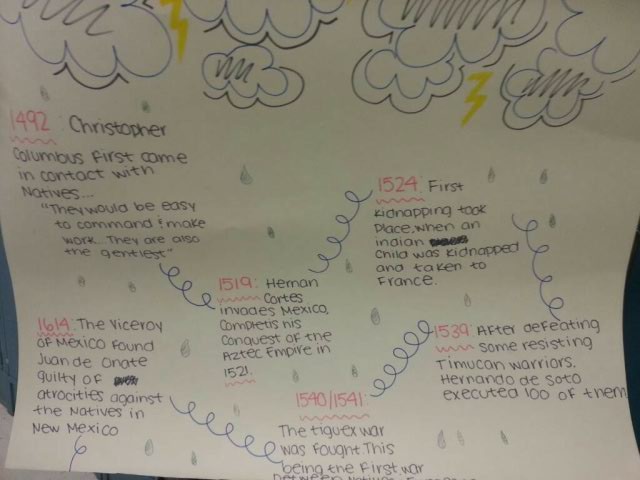 1492: Christopher
Columbus First came
in contact with
Natives...
"They would be easy
to command & make
work... They are also
the gentlest"
1519: Hernan
Cortes
invades Mexico,
Completis his
Conquest of the
Aztec Empire in
1521.
1524: First
kidnapping took
Place, when an
indian
child was kidnapped
and taken to
France.
1539: After defeating
some resisting
Timucan warriors.
Hernando de Soto
executed 100 of them
1540/1541:
The tiguex war
was fought. This
being the First war
between
1614: The Viceroy
OF Mexico Found
Juan de Onate
guilty of
atrocities against
the Natives in
New Mexico